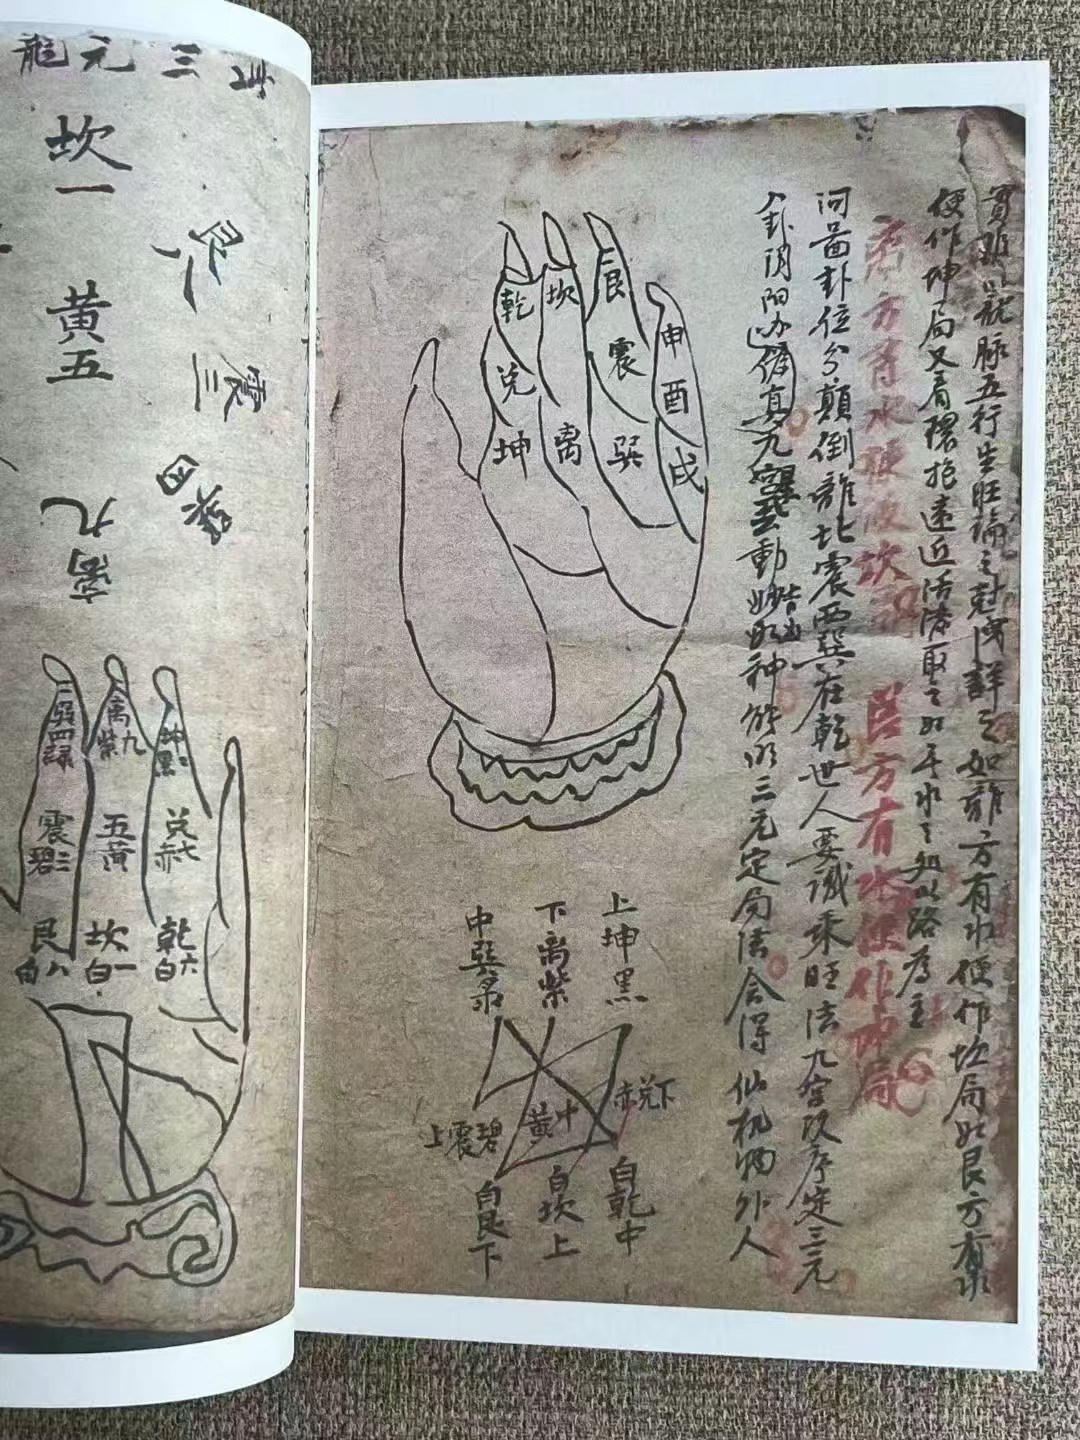 實難以龍脉五行生旺論之尅洩詳之如離方有水便作坎局如艮方有水
便作坤局又看環抱遠近活法取之如平水之如以路為主
离方有水便作坎局 艮方有水便作坤局
河啚卦位分顛倒離北震西巽在乾世人要識乘旺法九宮次序定三元
八卦陰陽从僞真九動妙皆神能以三元定局法會得仙机物外人
乾 坎 艮 申
兌 震 酉
坤 离 巽 戌
上坤黑
下离紫
中巽彔
赤兌下
黄中
上震碧
白乾中
白坎上
白艮下
三元龍
坎一
黄五
离九
艮八
震三
巽四
巽四綠
离九紫
坤二黑
震碧三
五黄
兌七赤
艮八白
坎一白
乾六白